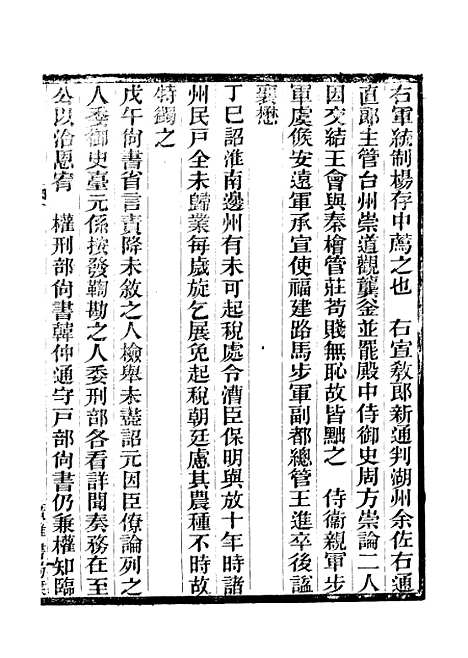 右軍統制楊存中薦之也　右宣敎郎新通判湖州余佐右通
直郎主管台州崇道觀龔釜並罷殿中侍御史周方崇論二人
因交結王會與秦檜管莊苟賤無恥故皆黜之　侍衞親軍步
軍虞候安遠軍承宣使福建路馬步軍副都總管王進卒後謚
襄懋
丁巳詔淮南邊州有未可起稅處令漕臣保明與放十年時諸
州民戸全未歸業每歲旋乞展免起稅朝廷慮其農種不時故
特蠲之
戊午尙書省言責降未敘之人檢舉未盡詔元因臣僚論列之
人委御史臺元係按發鞫勘之人委刑部各看詳聞奏務在至
公以洽恩宥　權刑部尙書韓仲通守戸部尙書仍兼權知臨